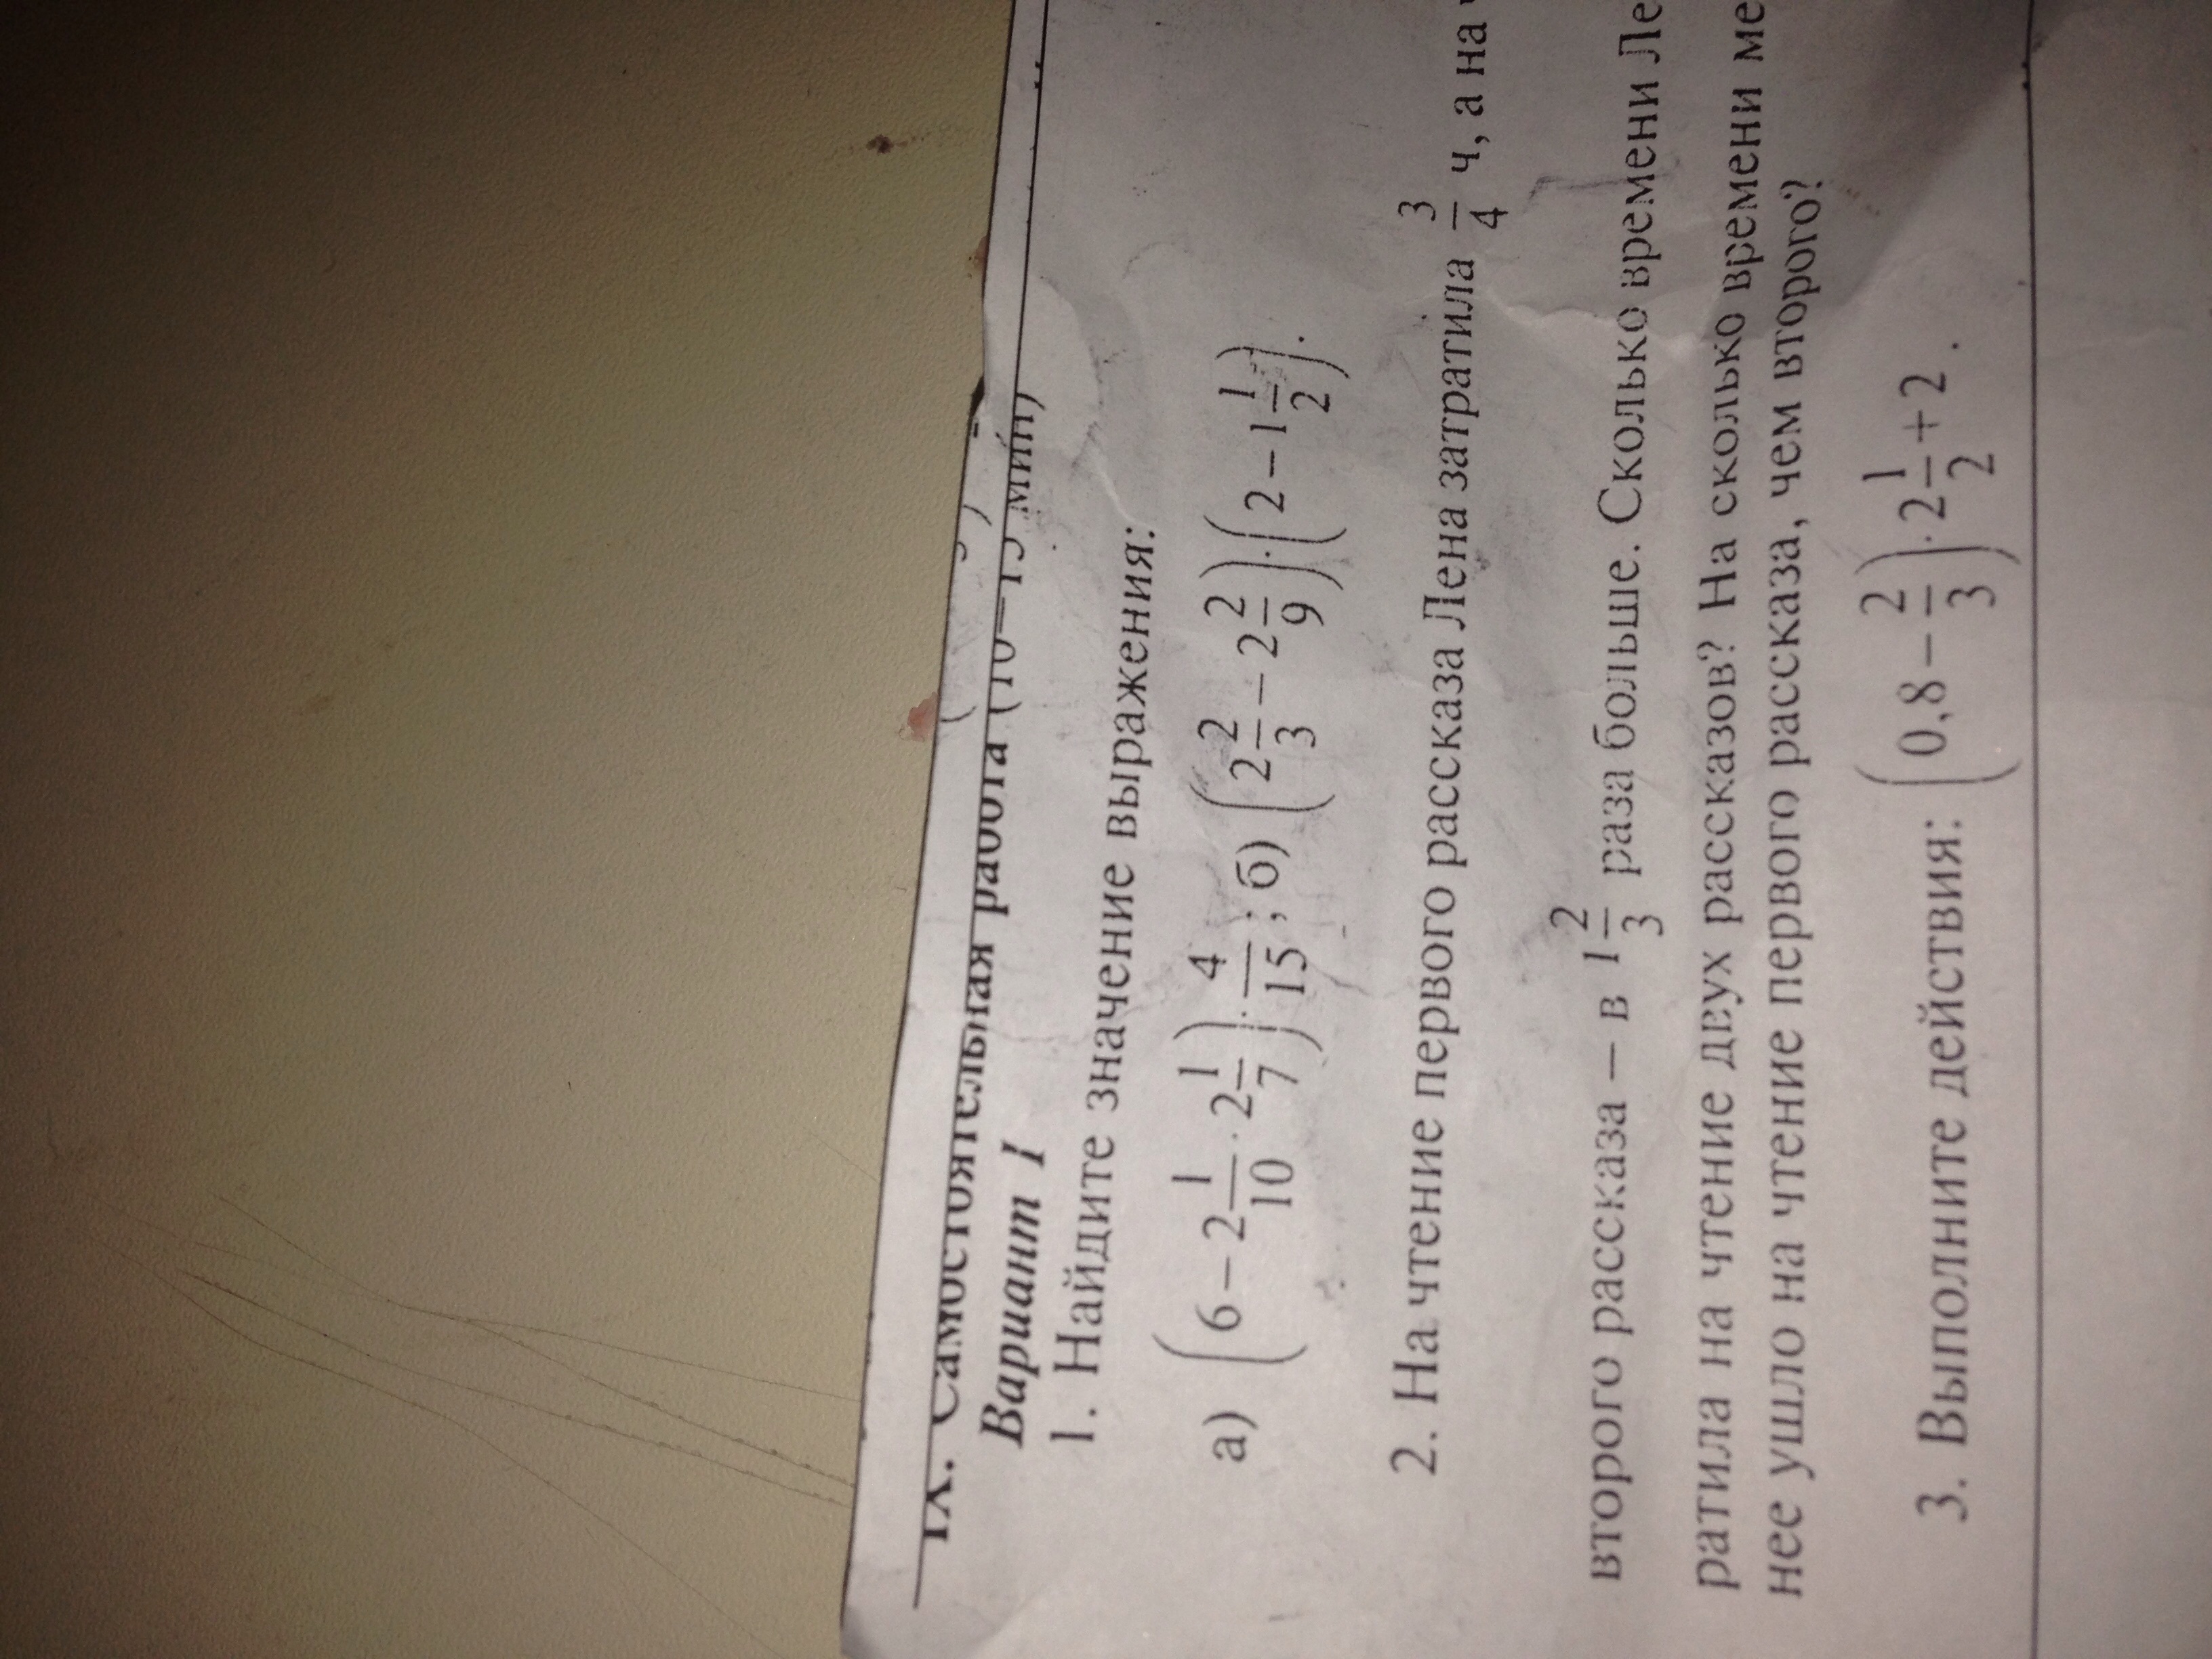 IX. Самостоятельная работа (10–15 мин)
Вариант I
1. Найдите значение выражения:
а) (6 − 2 1/10 · 2 1/7) · 4/15; б) (2 2/3 − 2 2/9) · (2 − 1 1/2).
2. На чтение первого рассказа Лена затратила 3/4 ч, а на
второго рассказа – в 1 2/3 раза больше. Сколько времени Ле
ратила на чтение двух рассказов? На сколько времени ме
нее ушло на чтение первого рассказа, чем второго?
3. Выполните действия: (0,8 − 2/3) · 2 1/2 + 2 .